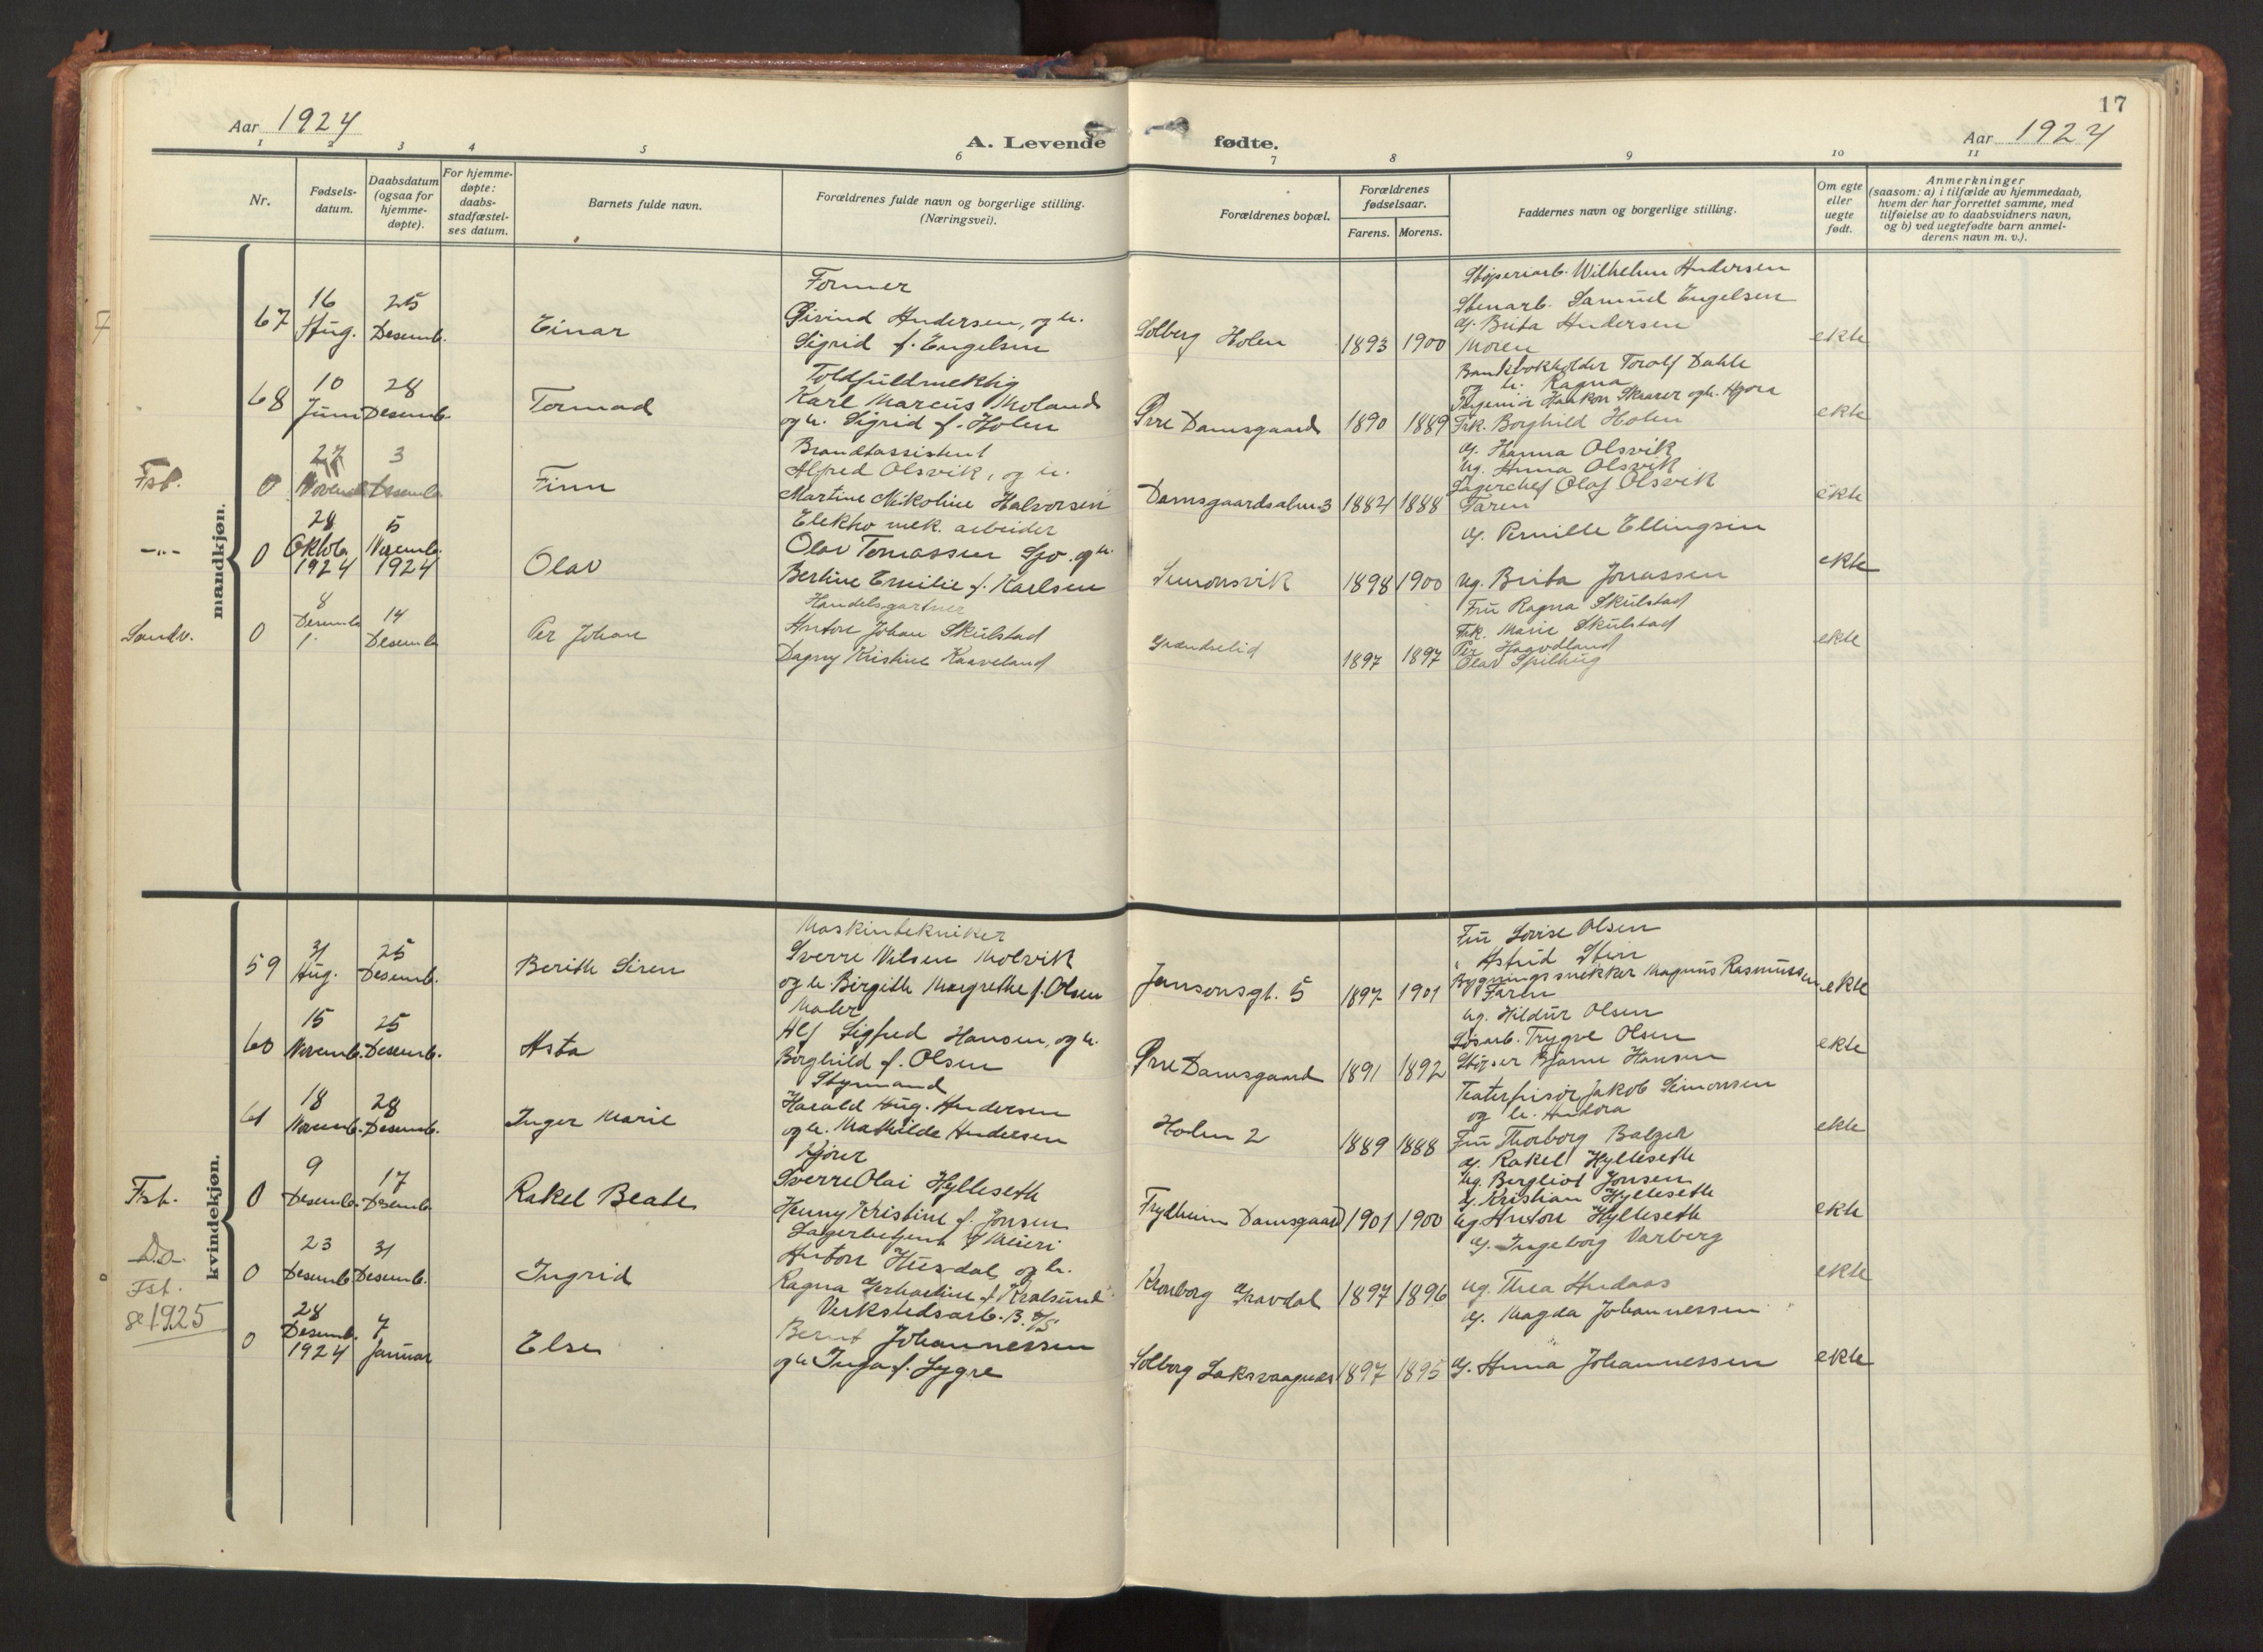 17
Aar 1924
A. Levende fødte.
Aar 1924
1 2 3 4 5 6 7 8 9 10 11
Nr.
Fødsels-
datum.
Daabsdatum
(ogsaa for
hjemme-
døpte).
For hjemme-
døpte:
daabs-
stadfæstel-
ses datum.
Barnets fulde navn.
Forældrenes fulde navn og borgerlige stilling.
(Næringsvei).
Forældrenes bopæl.
Forældrenes
fødselsaar.
Farens. Morens.
Faddernes navn og borgerlige stilling.
Om egte
eller
uegte
født.
Anmerkninger
(saasom: a) i tilfælde av hjemmedaab,
hvem der har forrettet samme, med
tilføielse av to daabsvidners navn,
og b) ved uegtefødte barn anmel-
derens navn m. v.).
mandkjøn.
67
16
Aug.
25
Desemb.
Einar
Former
Øivind Andersen, og h.
Sigrid f. Engelsen
Solberg Holen
1893 1900
Støperiarb. Wilhelm Andersen
Stenarb. Samuel Engelsen
G. Brita Andersen
Moren
ekte
68
10
Juni
28
Desemb.
Tormod
Toldfuldmektig
Karl Marcus Moland
og h. Sigrid f. Holen
Øvre Damsgaard
1890 1889
Bankbokholder Torolf Dahle
og h. Ragna
Ingeniør Haakon Skaarer og h.
Frk. Borghild Holen
ekte
Fst.
0
27
Novemb
3
Desemb
Finn
Brandassistent
Alfred Olsvik, og h.
Martine Nikoline Halvorsen
Damsgaardsalm. 3
1884 1888
G. Hanna Olsvik
Ug. Anna Olsvik
Lagerchef Olaf Olsvik
Faren
ekte
-"-
0
28
Oktob.
1924
5
Novemb.
1924
Olav
Elektro mek. arbeider
Olav Tomassen og h.
Bertine Emilie f. Karlsen
Simonsvik
1898 1900
G. Pernille Ellingsen
Ug. Brita Jonassen
ekte
Sandv.
0
8
Desemb
14
Desemb
Per Johan
Handelsgartner
Anton Johan Skulstad
Dagny Kristine Kaaveland
1897 1897
Fru Ragna Skulstad
Frk. Marie Skulstad
Per Haavdland
Olav Spilhug
ekte
kvindekjøn.
59
31
Aug.
25
Desemb.
Berith Siren
Maskintekniker
Sverre Nilsen Molvik
og h. Birgith Margrethe f. Olsen
Jansonsgt. 5
1897 1901
Fru Lovise Olsen
" Astrid Stien
Bygningssnekker Magnus Rasmussen
Faren
ekte
60
15
Novemb.
25
Desemb.
Asta
Maler
Alf Sigfred Hansen, og h.
Borghild f. Olsen
Øvre Damsgaard
1891 1892
Ug. Hildur Olsen
Løsarb. Trygve Olsen
Støper Bjarne Hansen
ekte
61
18
Novemb.
28
Desemb.
Inger Marie
Styrmand
Harald Aug. Andersen
og h. Mathilde Andersen
Holen 2
1889 1888
Teaterfrisør Jakob Simonsen
og h. Andora
Fru Thorborg Balzer
ekte
Fst.
0
9
Desemb.
17
Desemb
Rakel Beate
Kjører
Sverre Olai Hylleseth
Henny Kristine f. Jonsen
Frydheim Damsgaard
1901 1900
G. Rakel Hylleseth
Ug. Bergliot Jonsen
G. Kristian Hylleseth
Ug. Anton Hylleseth
ekte
Do.
0
23
Desemb
31
Desemb.
Ingrid
Lagerbetjent v/ Meieri
Anton Husdal, og h.
Ragna Gerhardine f. Kvalsund
Kronborg Gravdal
1897 1896
G. Ingeborg Varberg
Ug. Thea Andaas
ekte
Fst.
se 1925
0
28
Desemb.
1924
7
Januar
Else
Verkstedsarb. B. M/S
Bernt Johannessen
og h. Inga f. Lygre
Solberg Laksevaagnes
1897 1895
G. Magda Johannessen
G. Anna Johannessen
ekte